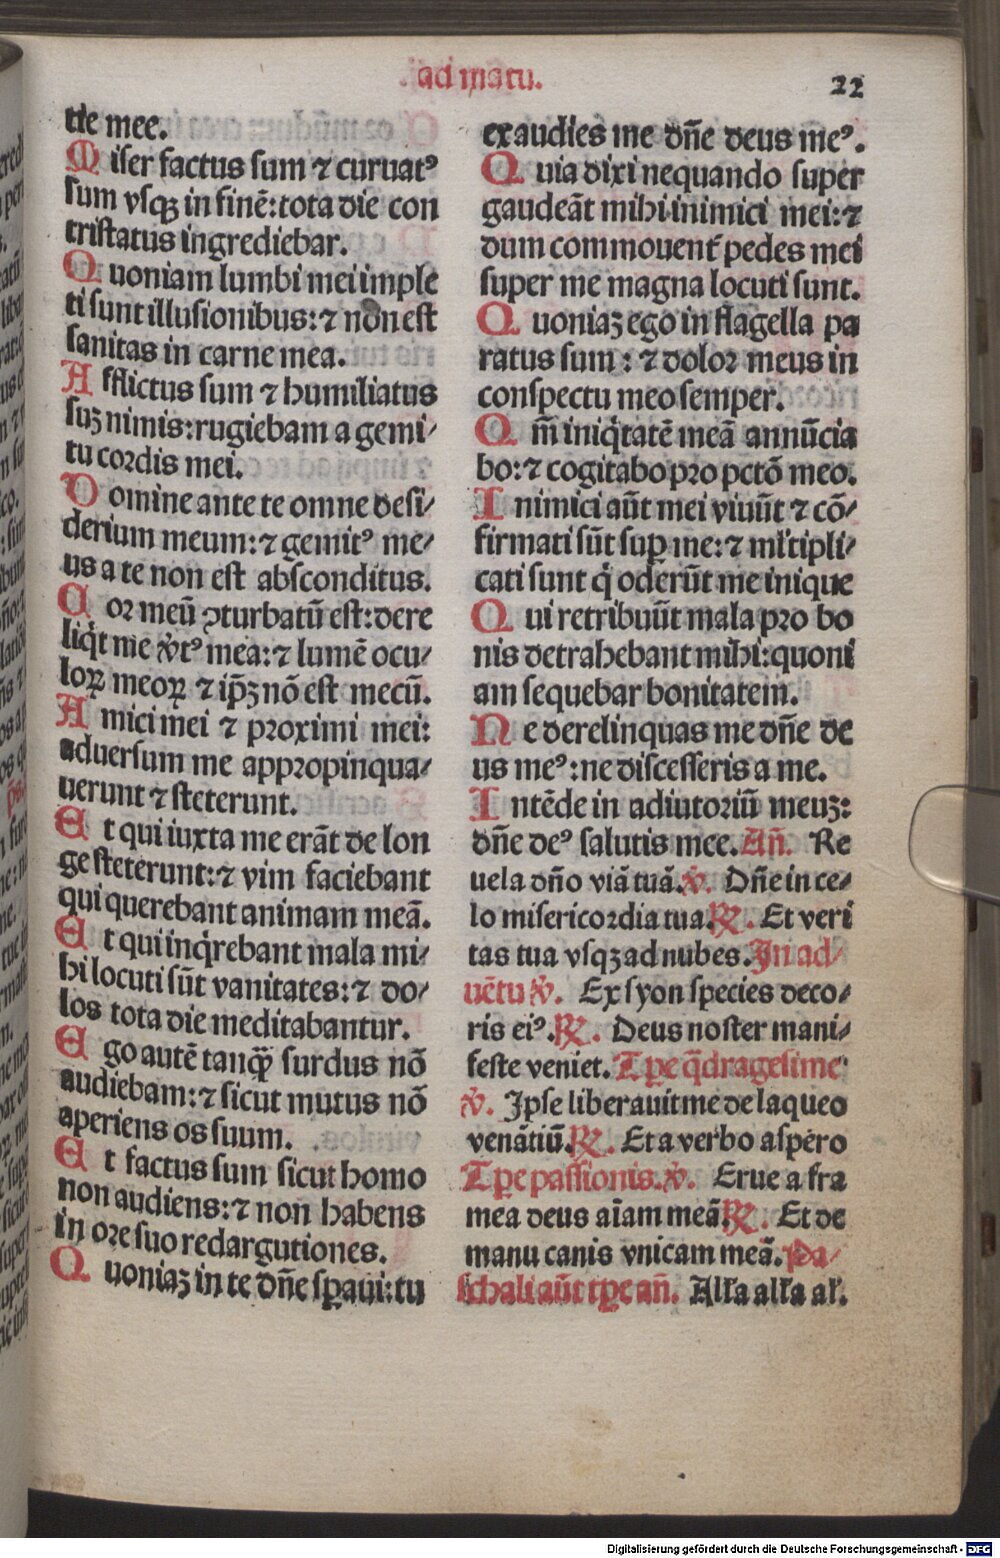 ad matu.
22
tie mee.
Miser factus sum ⁊ curuatꝰ
sum vsqꝫ in finē: tota die con
tristatus ingrediebar.
Quoniam lumbi mei imple
ti sunt illusionibus: ⁊ non est
sanitas in carne mea.
Afflictus sum ⁊ humiliatus
suꝫ nimis: rugiebam a gemi/
tu cordis mei.
Domine ante te omne desi/
derium meum: ⁊ gemitꝰ me/
us a te non est absconditus.
Cor meū ꝯturbatū est: dere
liq̇t me v̓tꝰ mea: ⁊ lumē ocu/
loꝝ meoꝝ ⁊ ip̄ꝫ nō est mecū.
Amici mei ⁊ proximi mei:
aduersum me appropinqua/
uerunt ⁊ steterunt.
Et qui iuxta me erāt de lon
ge steterunt: ⁊ vim faciebant
qui querebant animam meā.
Et qui inq̇rebant mala mi/
hi locuti sūt vanitates: ⁊ do/
los tota die meditabantur.
Ego autē tanqꝫ̄ surdus nō
audiebam: ⁊ sicut mutus nō
aperiens os suum.
Et factus sum sicut homo
non audiens: ⁊ non habens
in ore suo redargutiones.
Quoniaꝫ in te dn̄e sꝑaui: tu
exaudies me dn̄e deus meꝰ.
Quia dixi nequando super
gaudeāt mihi inimici mei: ⁊
dum commouent᷑ pedes mei
super me magna locuti sunt.
Quoniaꝫ ego in flagella pa
ratus sum: ⁊ dolor meus in
conspectu meo semper.
Qm̄ iniq̇tatē meā annūcia
bo: ⁊ cogitabo pro pctō meo.
Inimici aūt mei viuūt ⁊ cō/
firmati sūt suꝑ me: ⁊ ml̓tipli/
cati sunt q̇ oderūt me inique
Qui retribuūt mala pro bo
nis detrahebant mihi: quoni
am sequebar bonitatem.
Ne derelinquas me dn̄e de
us meꝰ: ne discesseris a me.
Intēde in adiutoriū meuꝫ:
dn̄e deꝰ salutis mee. Añ. Re
uela dn̄o viā tuā. ℣. Dn̄e in ce/
lo misericordia tua. ℟. Et veri
tas tua vsqꝫ ad nubes. In ad/
uētu ℣. Ex syon species deco/
ris eiꝰ. ℟. Deus noster mani/
feste veniet. Tꝑe q̄dragesime
℣. Ipse liberauit me de laqueo
venātiū. ℟. Et a verbo aspero
Tꝑe passionis. ℣. Erue a fra
mea deus aīam meā ℟. Et de
manu canis vnicam meā. Pa/
schali aūt tꝑe añ. Alł̓a alł̓a al̓.
Digitalisierung gefördert durch die Deutsche Forschungsgemeinschaft - DFG